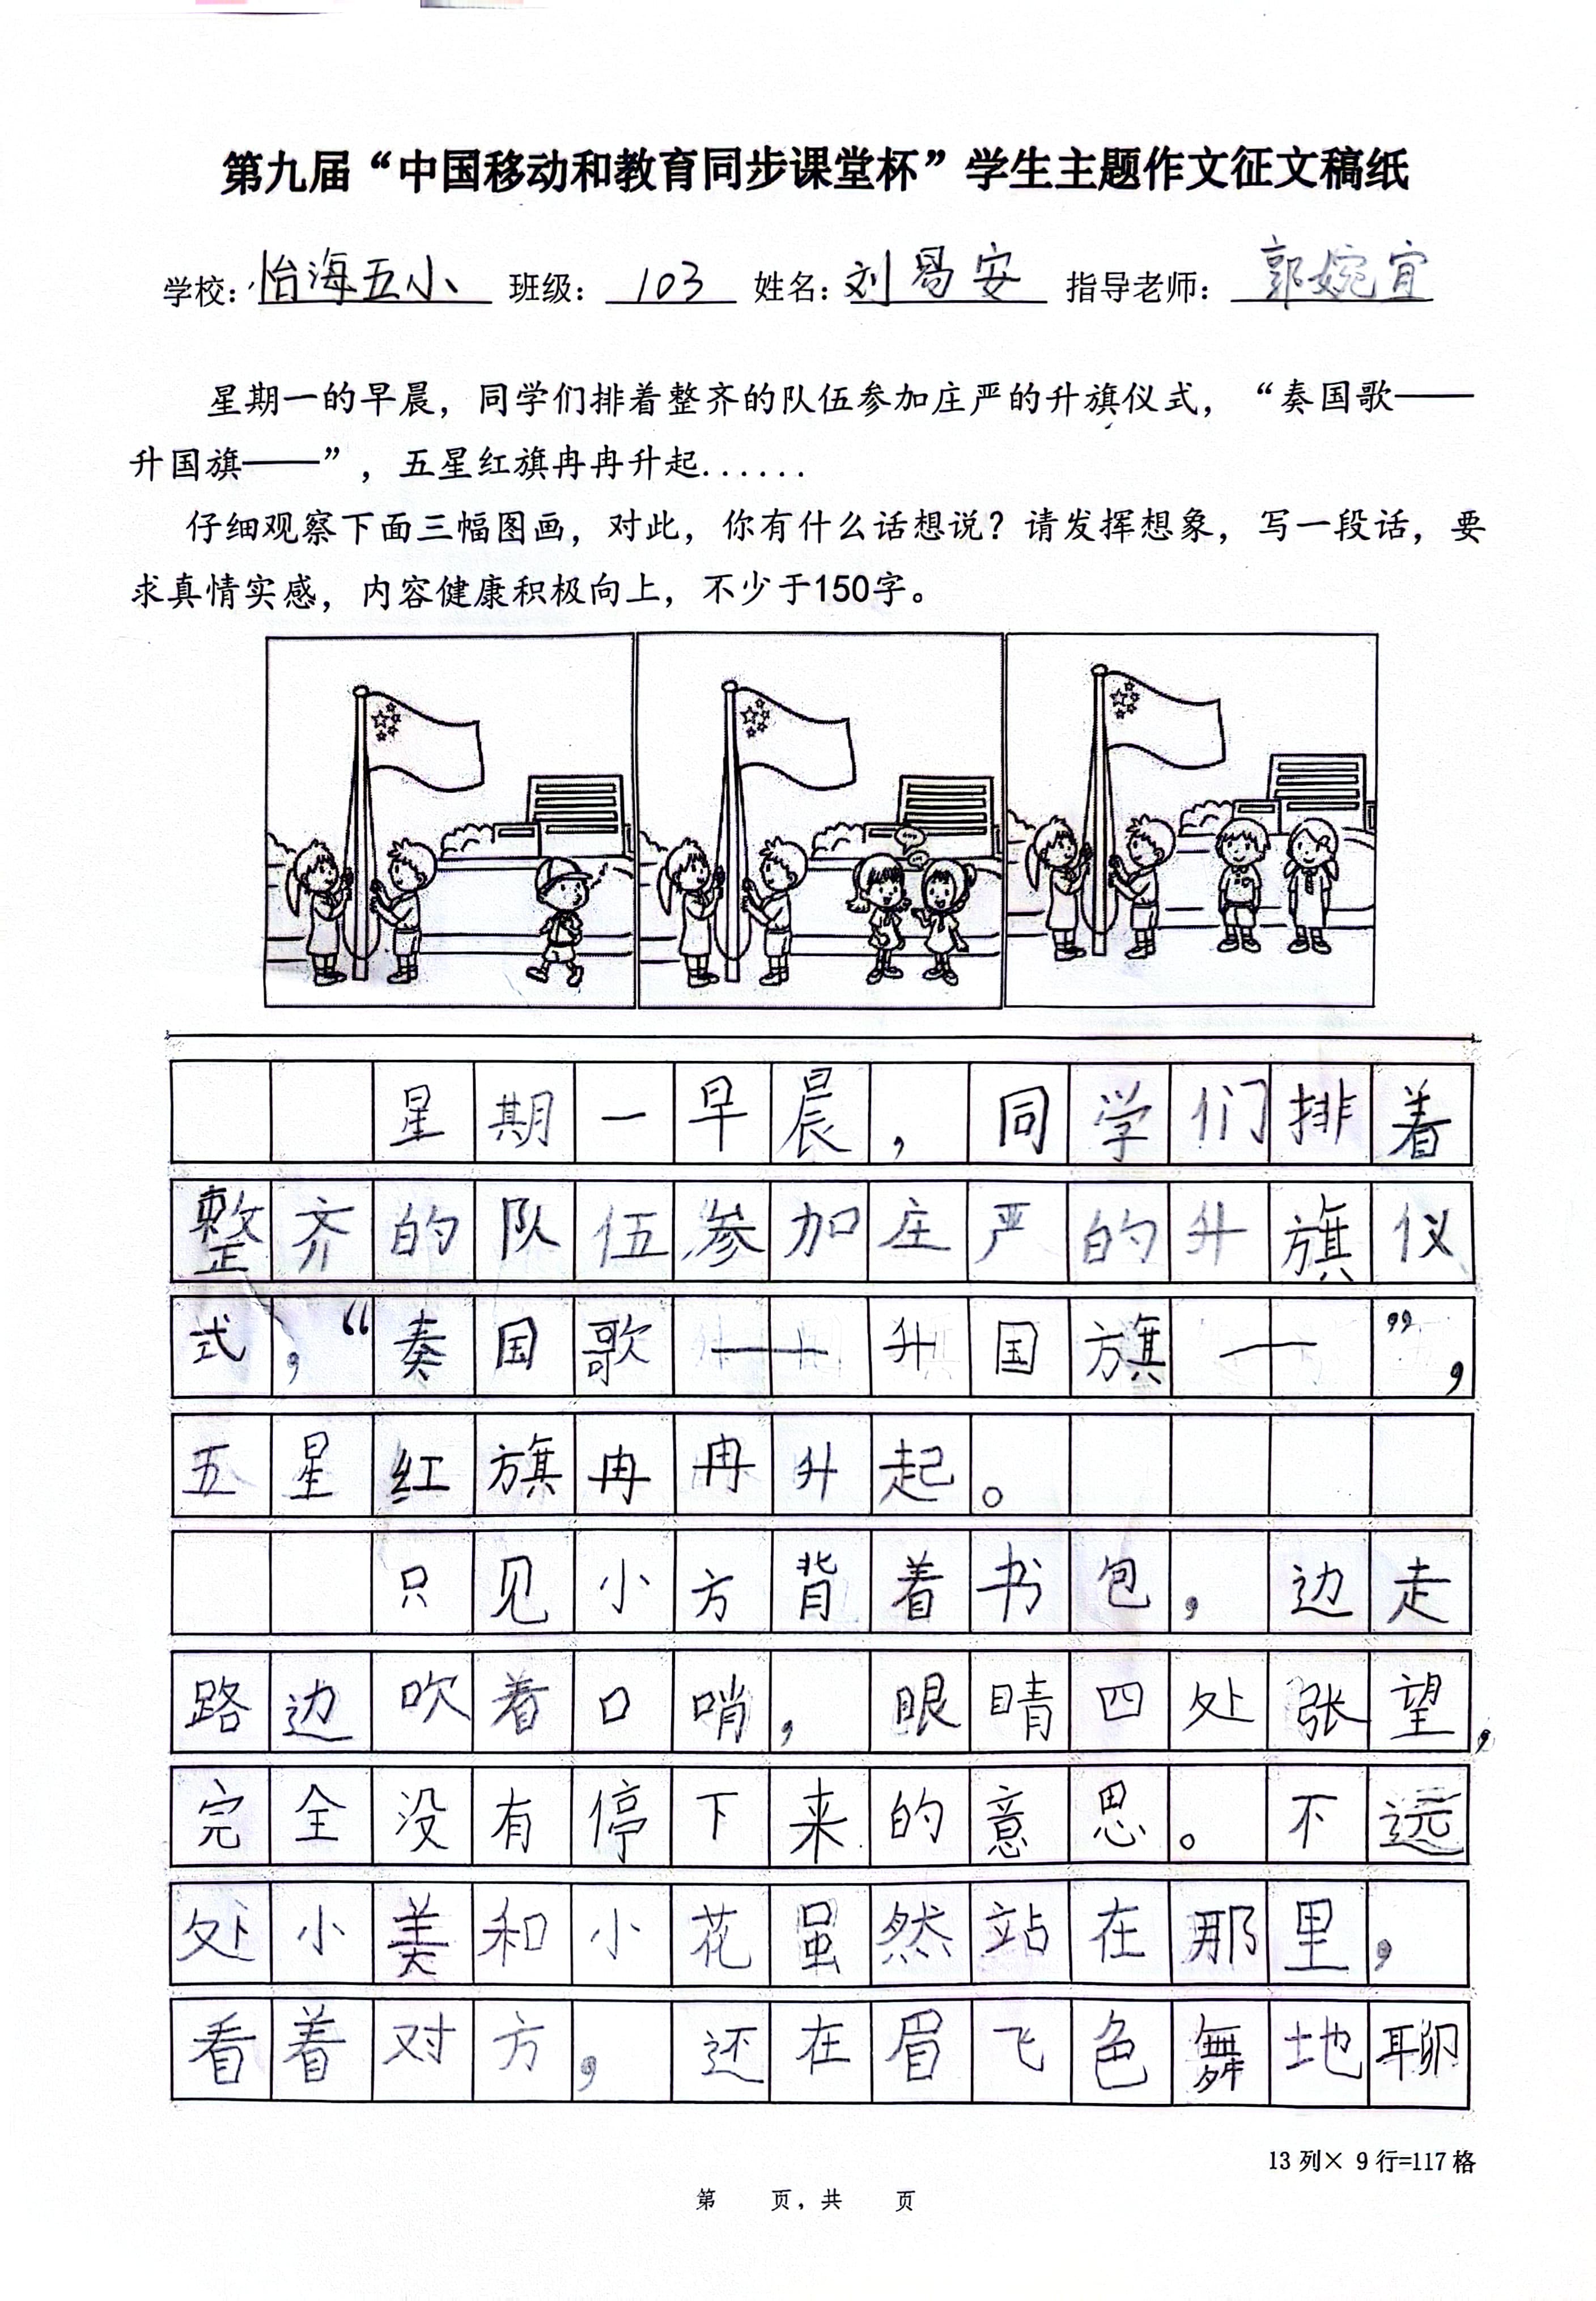 第九届“中国移动和教育同步课堂杯”学生主题作文征文稿纸
学校：怡海五小 班级：103 姓名：刘易安 指导老师：郭婉宜
星期一的早晨，同学们排着整齐的队伍参加庄严的升旗仪式，“奏国歌——
升国旗——”，五星红旗冉冉升起......
仔细观察下面三幅图画，对此，你有什么话想说？请发挥想象，写一段话，要
求真情实感，内容健康积极向上，不少于150字。
星期一早晨，同学们排着
整齐的队伍参加庄严的升旗仪
式，“奏国歌——升国旗——”，
五星红旗冉冉升起。
只见小方背着书包，边走
路边吹着口哨，眼睛四处张望，
完全没有停下来的意思。不远
处小美和小花虽然站在那里，
看着对方，还在眉飞色舞地聊
13列×9行=117格
第 页，共 页